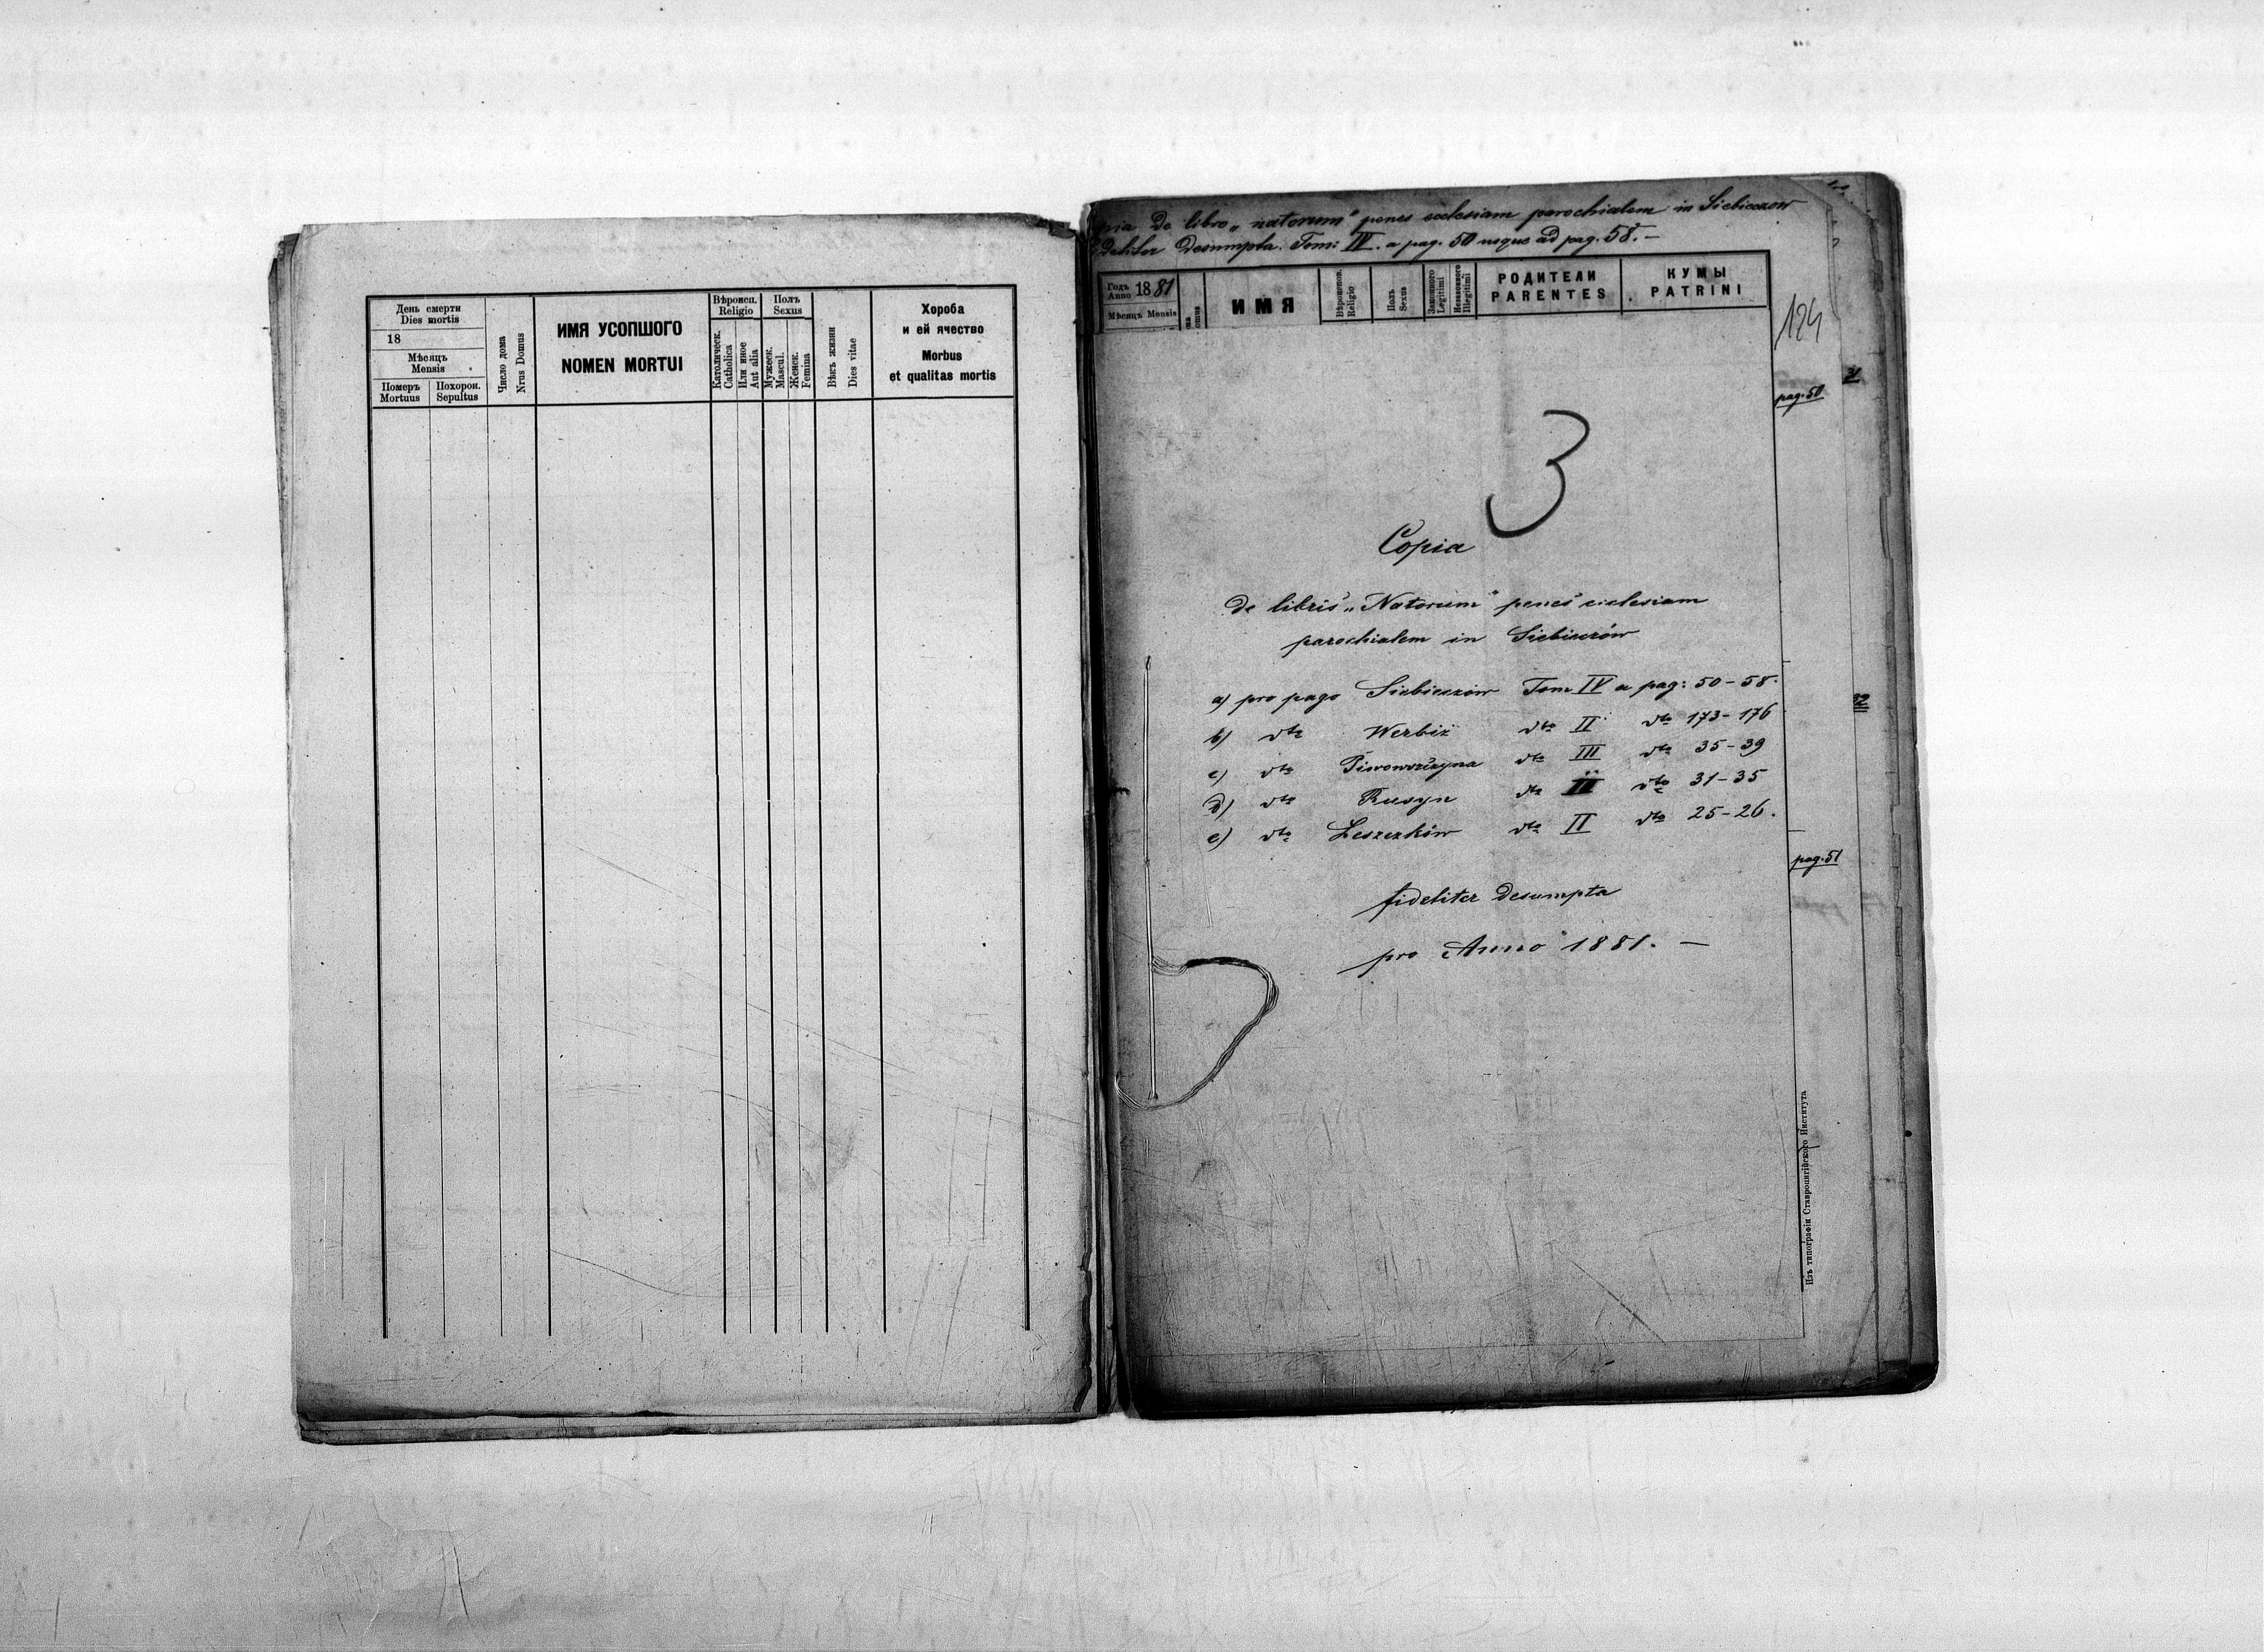 День смерти
Dies mortis
18
Мѣсяцъ
Mensis
Померъ
Mortuus
Похорон.
Sepultus
Число дома
Nrus Domus
ИМЯ УСОПШОГО
NOMEN MORTUI
Вѣроисп.
Religio
Католическ.
Catholica
Или иное
Aut alia
Полъ
Sexus
Мужеск.
Mascul.
Женск.
Femina
Вѣкъ жизни
Dies vitae
Хороба
и ей ячество
Morbus
et qualitas mortis
De libro „natorum" penes ecclesiam parochialem in Siebieczow
desumpta. Tom: IV. a pag. 50 usque ad pag. 58. —
Годъ
Anno 1881
Мѣсяцъ Mensis
ИМЯ
Вѣроиспов.
Religio
Полъ
Sexus
Законного
Legitimi
Незаконного
Illegitimi
РОДИТЕЛИ
PARENTES
КУМЫ
PATRINI
124
31
pag. 50
3
Copia
de libris „Natorum" penes ecclesiam
parochialem in Siebieczów
a) pro pago Siebieczów Tom IV a pag: 50-58.
b) dto Werbiż dto II dto 173-176
c) dto Piwowszczyna dto III dto 35-39
d) dto Rusyn dto II dto 31-35
e) dto Leszczków dto II dto 25-26.
32
pag. 51
fideliter desumpta
pro Anno 1881. —
Изъ типографіи Ставропигійского Института